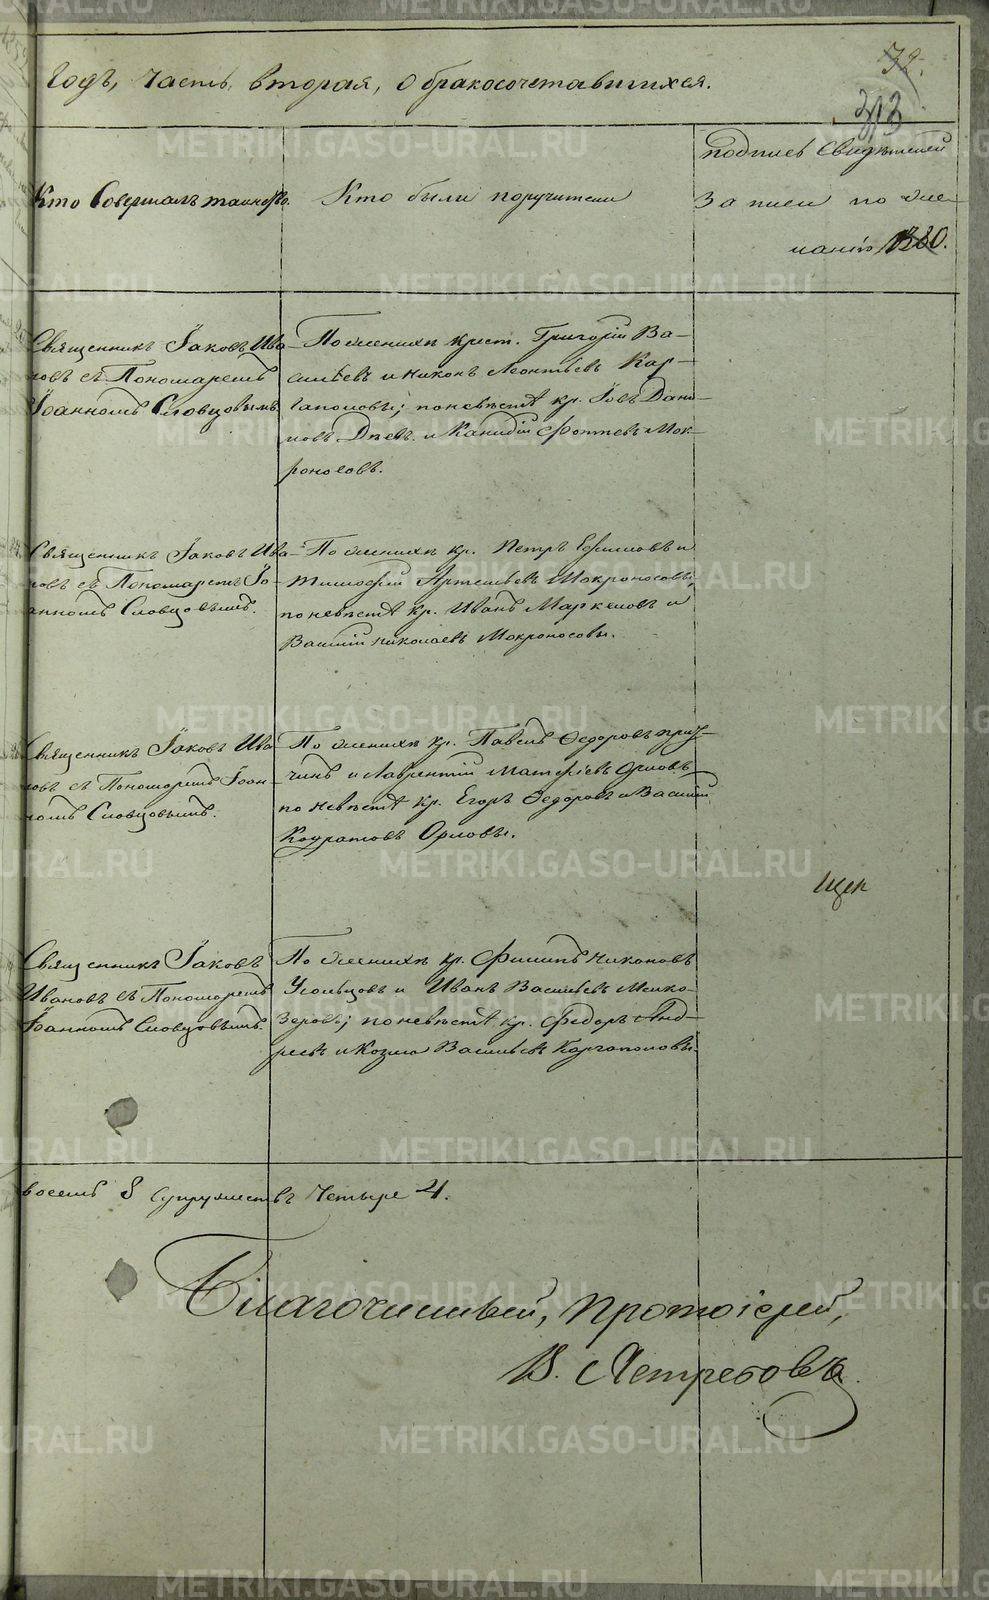 годъ, часть вторая, о бракосочетавшихся.
32.
313
Кто Совершалъ таинство.
Кто были поручители
подпись Свидѣтелей
Записи по же-
ланію
Священникъ Іаковъ Ива-
новъ съ Пономаремъ
Іоанномъ Словцовымъ.
По женихѣ крест. Григорій Ва-
сильевъ и Никонъ Леонтьевъ Кар-
гаполовы; по невѣстѣ кр. Іовъ Дани-
ловъ и Фотіевъ Мок-
роносовъ.
Священникъ Іаковъ Ива-
новъ съ Пономаремъ Іо-
анномъ Словцовымъ.
По женихѣ кр. Петръ Ефимовъ и
Тимофей Артемьевъ Мокроносовы,
по невѣстѣ кр. Иванъ Маркеловъ и
Василій Николаевъ Мокроносовы.
Священникъ Іаковъ Ива-
новъ съ Пономаремъ Іоан-
номъ Словцовымъ.
По женихѣ кр. Павелъ Федоровъ
и Лаврентій Матфѣевъ Орловъ,
по невѣстѣ кр. Егоръ Федоровъ и Василій
Кодратовъ Орловы.
Священникъ Іаковъ
Ивановъ съ Пономаремъ
Іоанномъ Словцовымъ.
По женихѣ кр. Филипъ Никоновъ
Усольцовъ и Иванъ Васильевъ Мелко-
зеровъ; по невѣстѣ кр. Федоръ Анд-
реевъ и Козма Васильевъ Каргаполовы.
восемь 8 супружествъ четыре 4.
Благочинный, Протоіерей,
В. Ястребовъ.
METRIKI.GASO-URAL.RU